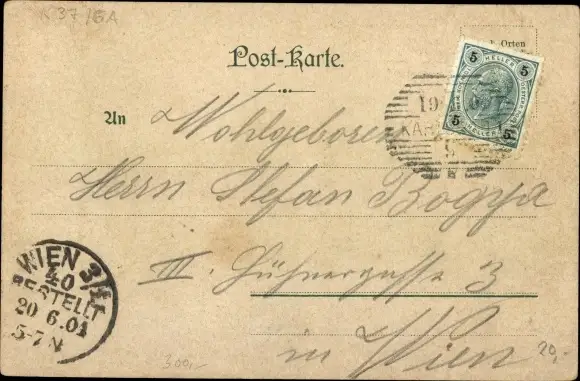 K 37/6A
Orten
Post-Karte.
5 HELLER 5
5 HELLER 5
19
KAR
An Wohlgeboren
Herrn Stefan Bogya
III. Hühnergasse 3
in Wien
WIEN 3/1
40
BESTELLT
20 6.01
5-7 N
300,-
20,-